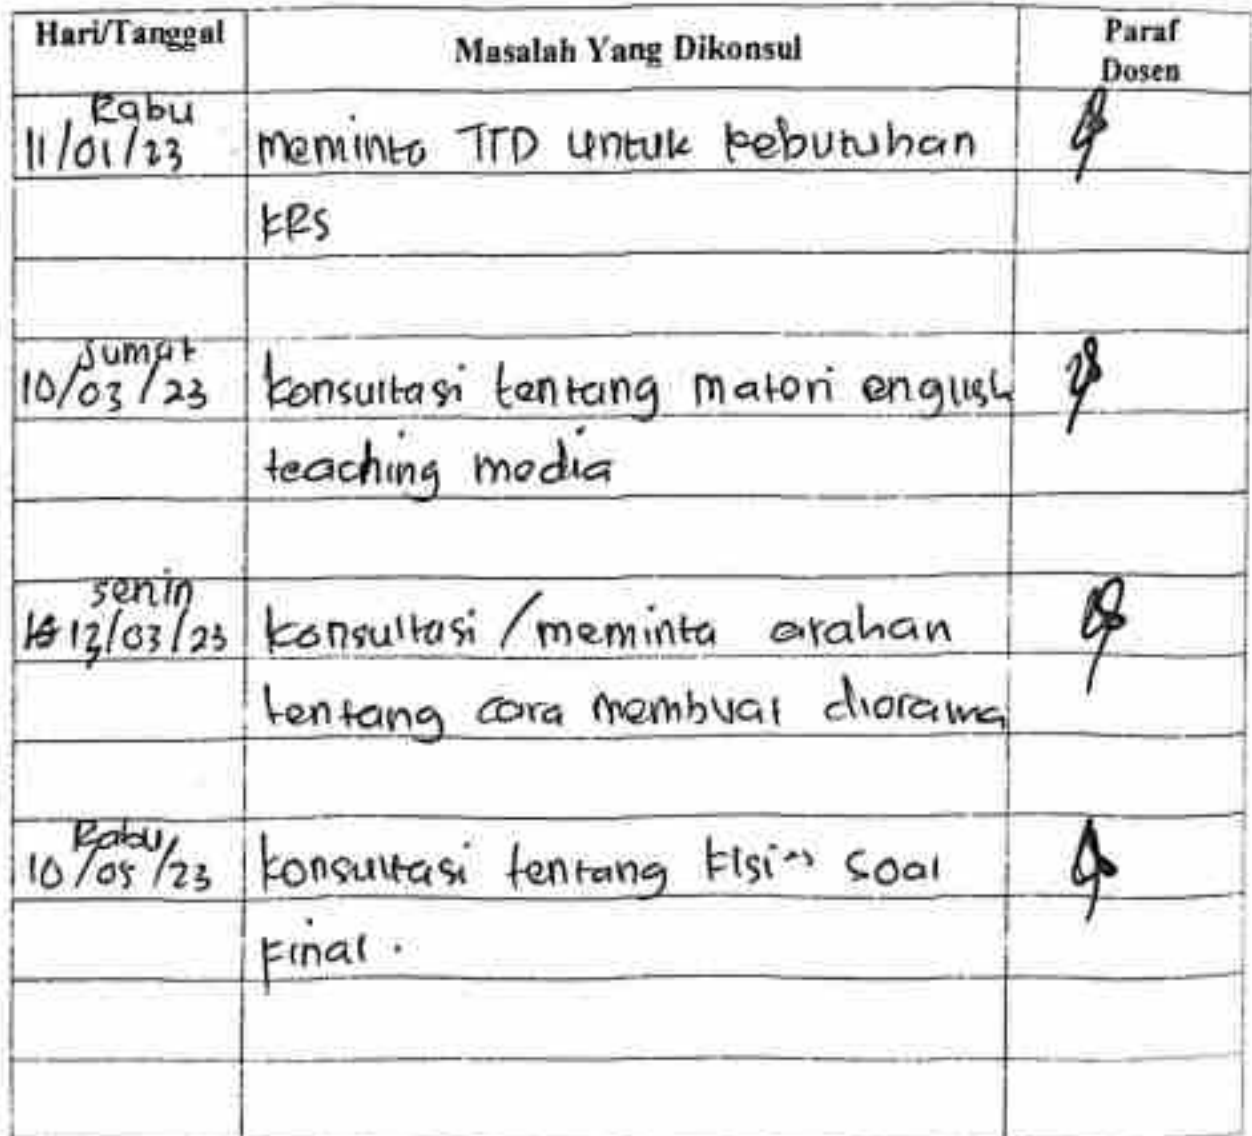 Hari/Tanggal Masalah Yang Dikonsul Paraf
Dosen
Rabu
11/01/23 meminta TTD untuk kebutuhan
KRS
Jumat
10/03/23 konsultasi tentang materi english
teaching media
senin
13/03/23 konsultasi/meminta arahan
tentang cara membuat diorama
Rabu
10/05/23 konsultasi tentang kisi" soal
Final.